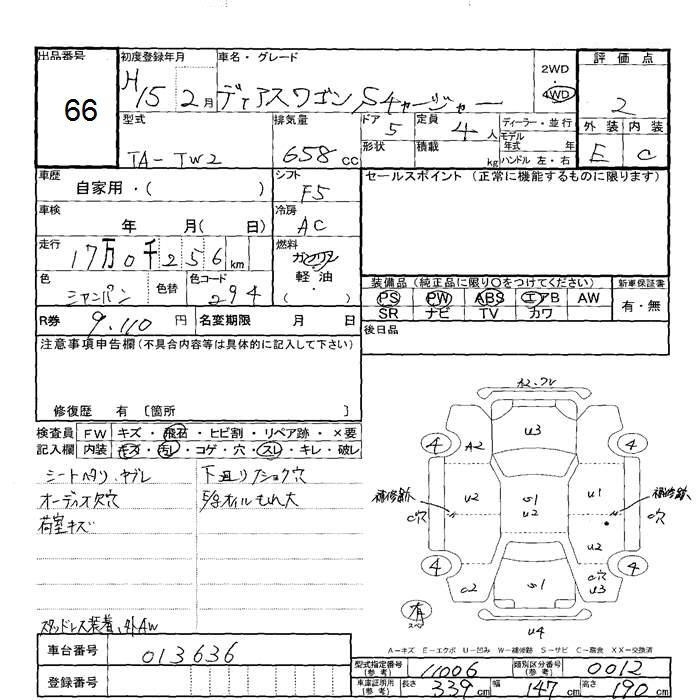 出品番号
66
初度登録年月
H15 2月
車名・グレード
ディアスワゴン Sチャージャー
2WD
・
4WD
評価点
2
外装 内装
E C
型式
TA-TW2
排気量
658 cc
ドア
5
形状
定員
4 人
積載
kg
ディーラー・並行
モデル年式 年
ハンドル 左・右
車歴
自家用・( )
シフト
F5
セールスポイント (正常に機能するものに限ります)
車検
年 月( 日)
冷房
AC
走行
17万0千256km
燃料
ガソリン
軽油
( ・ )
色
シャンパン
色替
色コード
294
装備品 (純正品に限り○をつけてください)
PS PW ABS エアB AW
SR ナビ TV カワ
新車保証書
有・無
R券
9,110 円
名変期限 月 日
後日品
注意事項申告欄(不具合内容等は具体的に記入して下さい)
修復歴 有 〔箇所 〕
検査員 FW キズ・飛石・ヒビ割・リペア跡・×要
記入欄 内装 キズ・汚レ・コゲ・穴・スレ・キレ・破レ
シートヘタリ、ヤブレ
オーディオ欠穴
荷室キズ
下廻り
オイルもれ大
スタッドレス装着、外AW
A2、ワレ
4 A2 U3 4
補修跡 C穴 U2 S1 U2 U1 補修跡 C穴
U2
4 C2 S1 C穴 U3 4
有
スペア
U4
A-キズ E-エクボ U-凹み W-補修跡 S-サビ C-腐食 XX-交換済
車台番号
013636
登録番号
型式指定番号 (参考)
11006
類別区分番号 (参考)
0012
車庫証明用 (参考)
長さ 339cm 幅 147cm 高さ 190cm